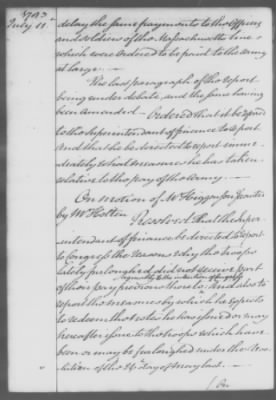 1783
July 11.
delay the same payments to the officers
and soldiers of the Massachusetts line
which were ordered to be paid to the army
at large.
The last paragraph of the report
being under debate, and the same having
been amended. Ordered that it be referred
to the Superintendant of finance to report
And that he be directed to report imme
diately what measures he has taken
relative to the pay of the Army.
On motion of Mr Higginson seconded
by Mr Holten Resolved That the super
intendant of finance be directed to report
to Congress the reasons why the troops
lately furloughed did not receive part
of their pay previous thereto
agreeably to the intention of Congress
And also to
report the measures by which he expects
to redeem the notes he has issued or may
hereafter issue to the troops which have
been or may be furloughed under the reso
lution of the 26 day of May last.
On